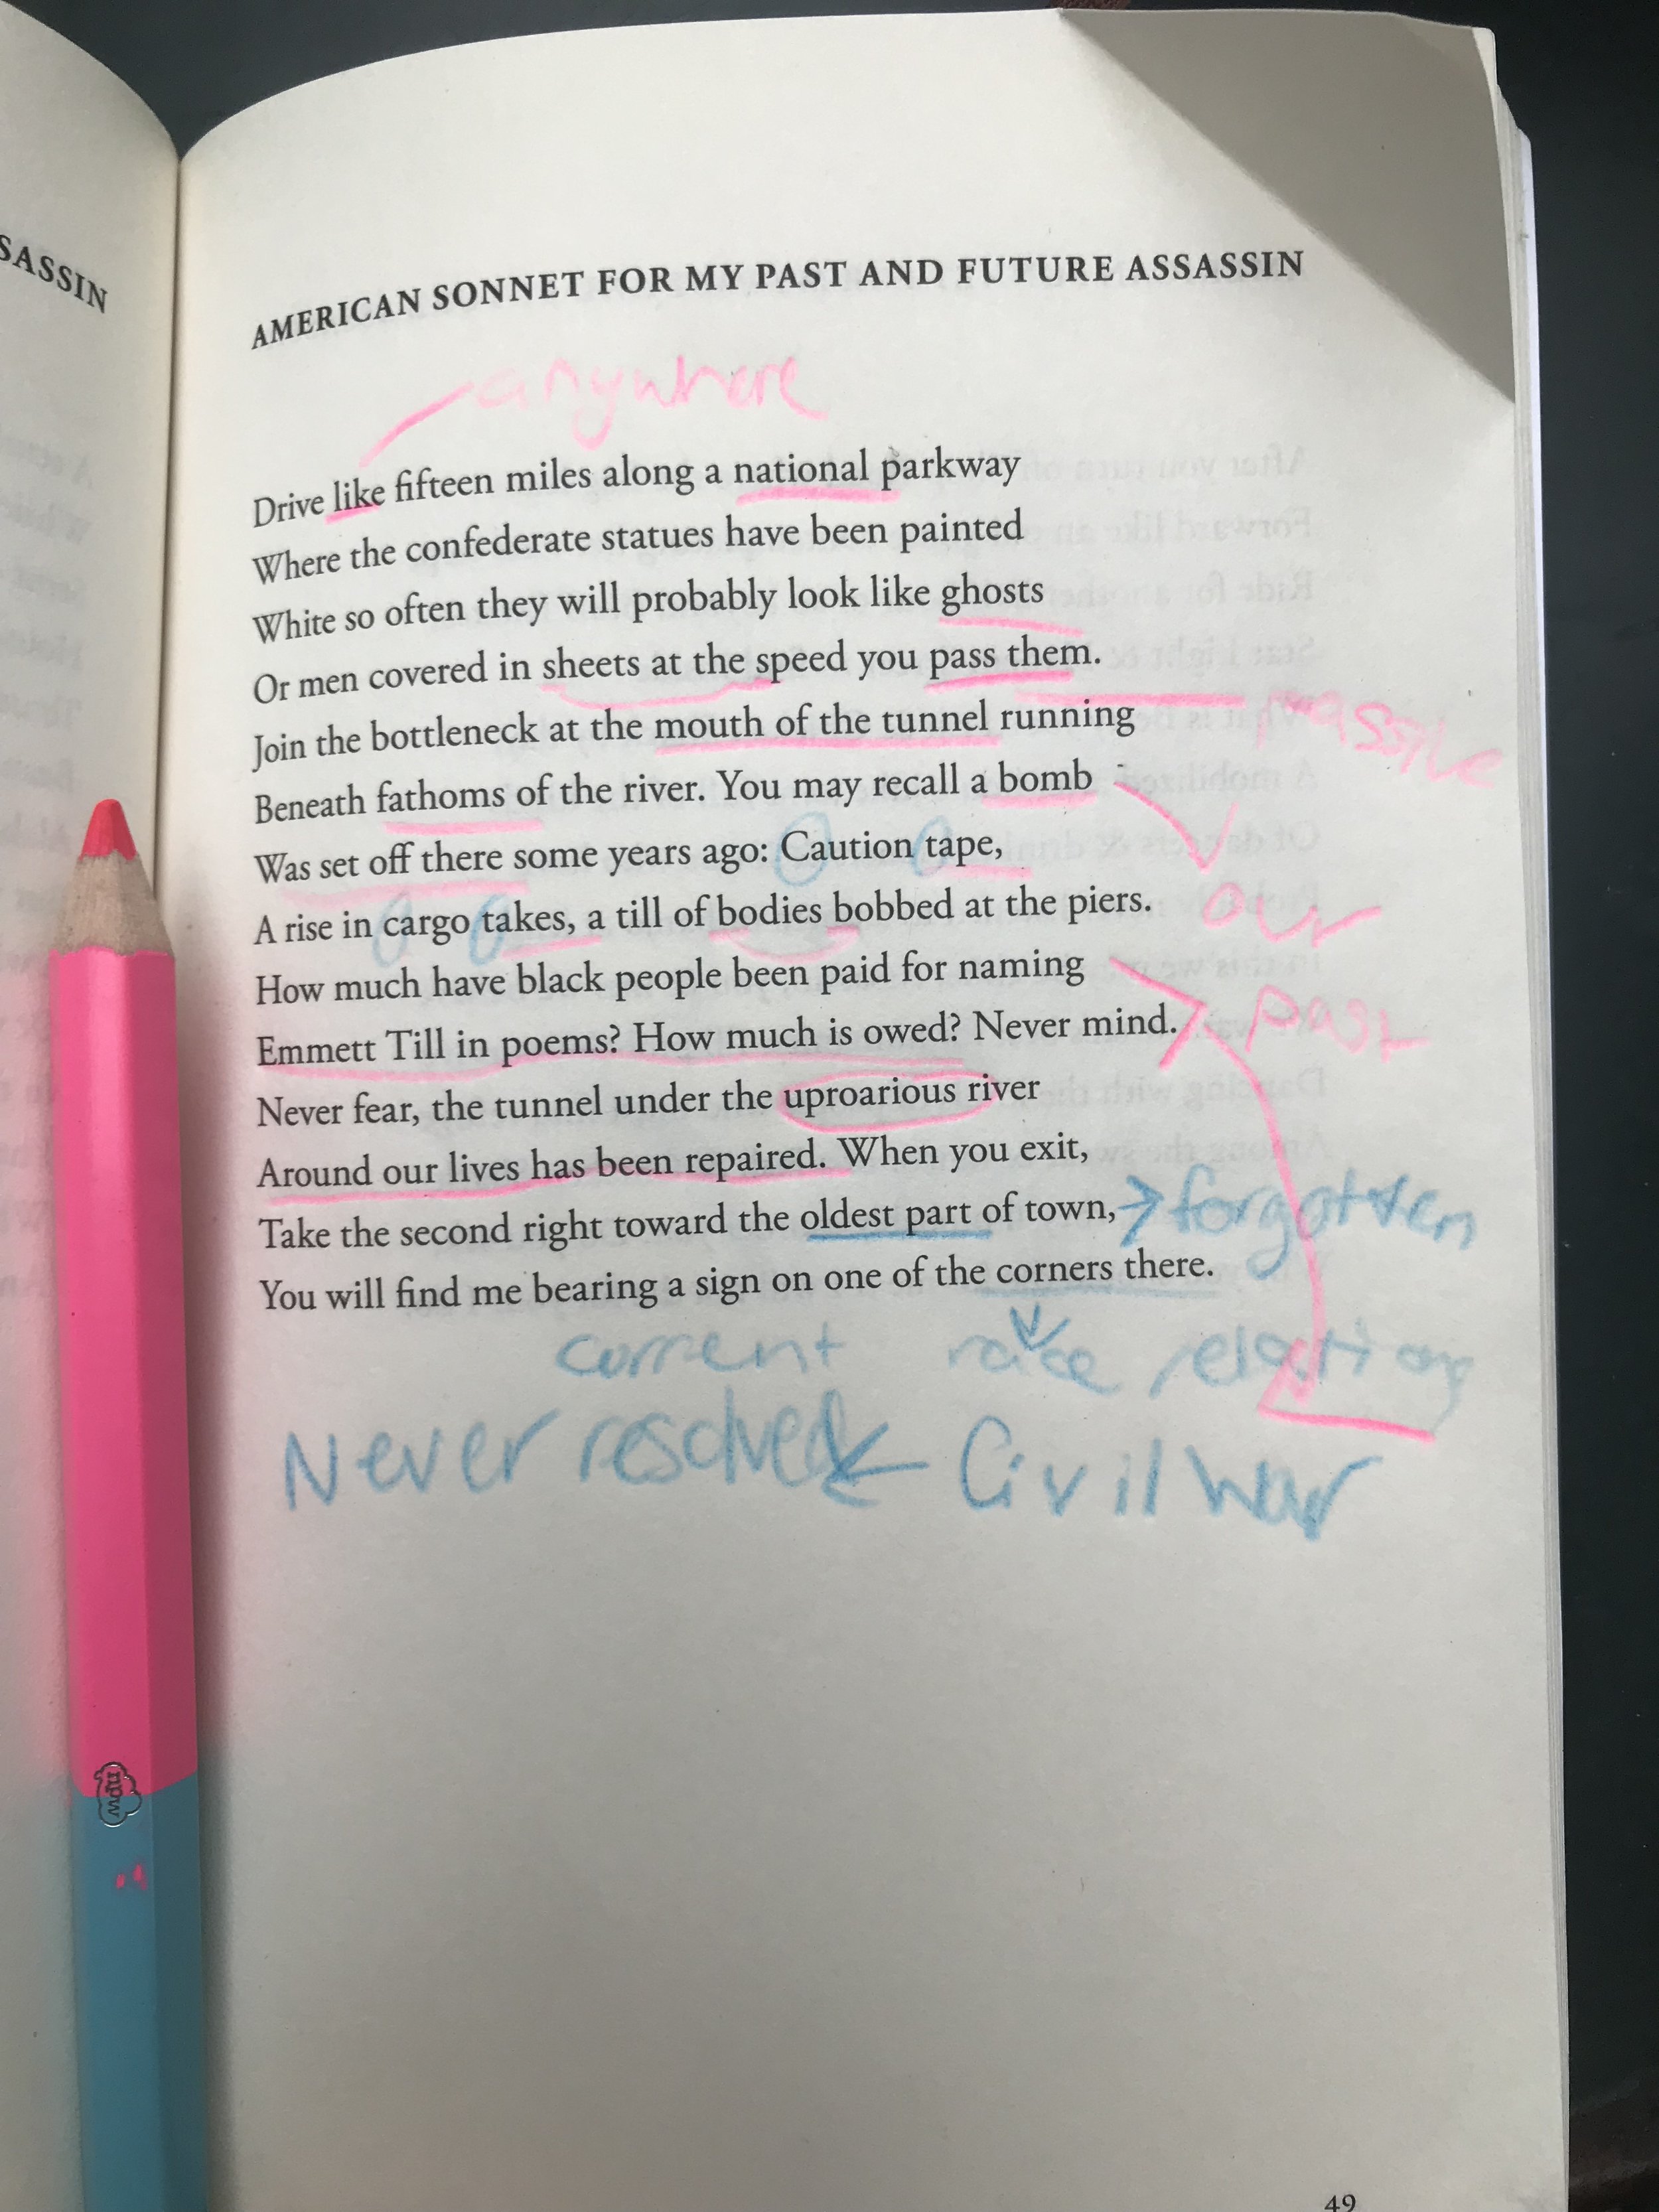 SASSIN
AMERICAN SONNET FOR MY PAST AND FUTURE ASSASSIN
anywhere
Drive like fifteen miles along a national parkway
Where the confederate statues have been painted
White so often they will probably look like ghosts
Or men covered in sheets at the speed you pass them.
passive
Join the bottleneck at the mouth of the tunnel running
Beneath fathoms of the river. You may recall a bomb
Was set off there some years ago: Caution tape,
A rise in cargo takes, a till of bodies bobbed at the piers.
our
How much have black people been paid for naming
past
Emmett Till in poems? How much is owed? Never mind.
Never fear, the tunnel under the uproarious river
Around our lives has been repaired. When you exit,
Take the second right toward the oldest part of town,
forgotten
You will find me bearing a sign on one of the corners there.
current race relations
Never resolved Civil War
49